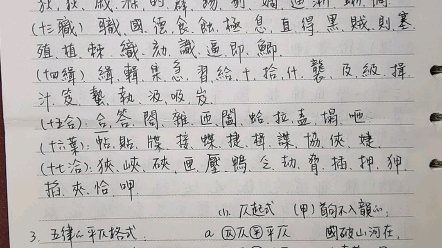 (十三職) 職.國.德.食.蝕.極.息.直.得.黑.賊.則.塞
殖.植.棘.織.劾.識.逼.即.鯽.
(十四緝) 緝.輯.集.急.習.給.十.拾.什.襲.及.級.揖
汁.笈.蟄.執.汲.吸.岌
(十五合): 合.答.閤.雜.匝.闔.蛤.拉.盍.榻.咂.
(十六葉): 帖.貼.牒.接.蝶.捷.楫.諜.協.俠.婕.
(十七洽): 狹.峽.硤.匣.壓.鴨.乏.劫.脅.插.押.狎
掐.夾.恰.呷
(1). 仄起式 (甲) 首句不入韻
3. 五律 平仄格式. a 仄仄平平仄 國破山河在,